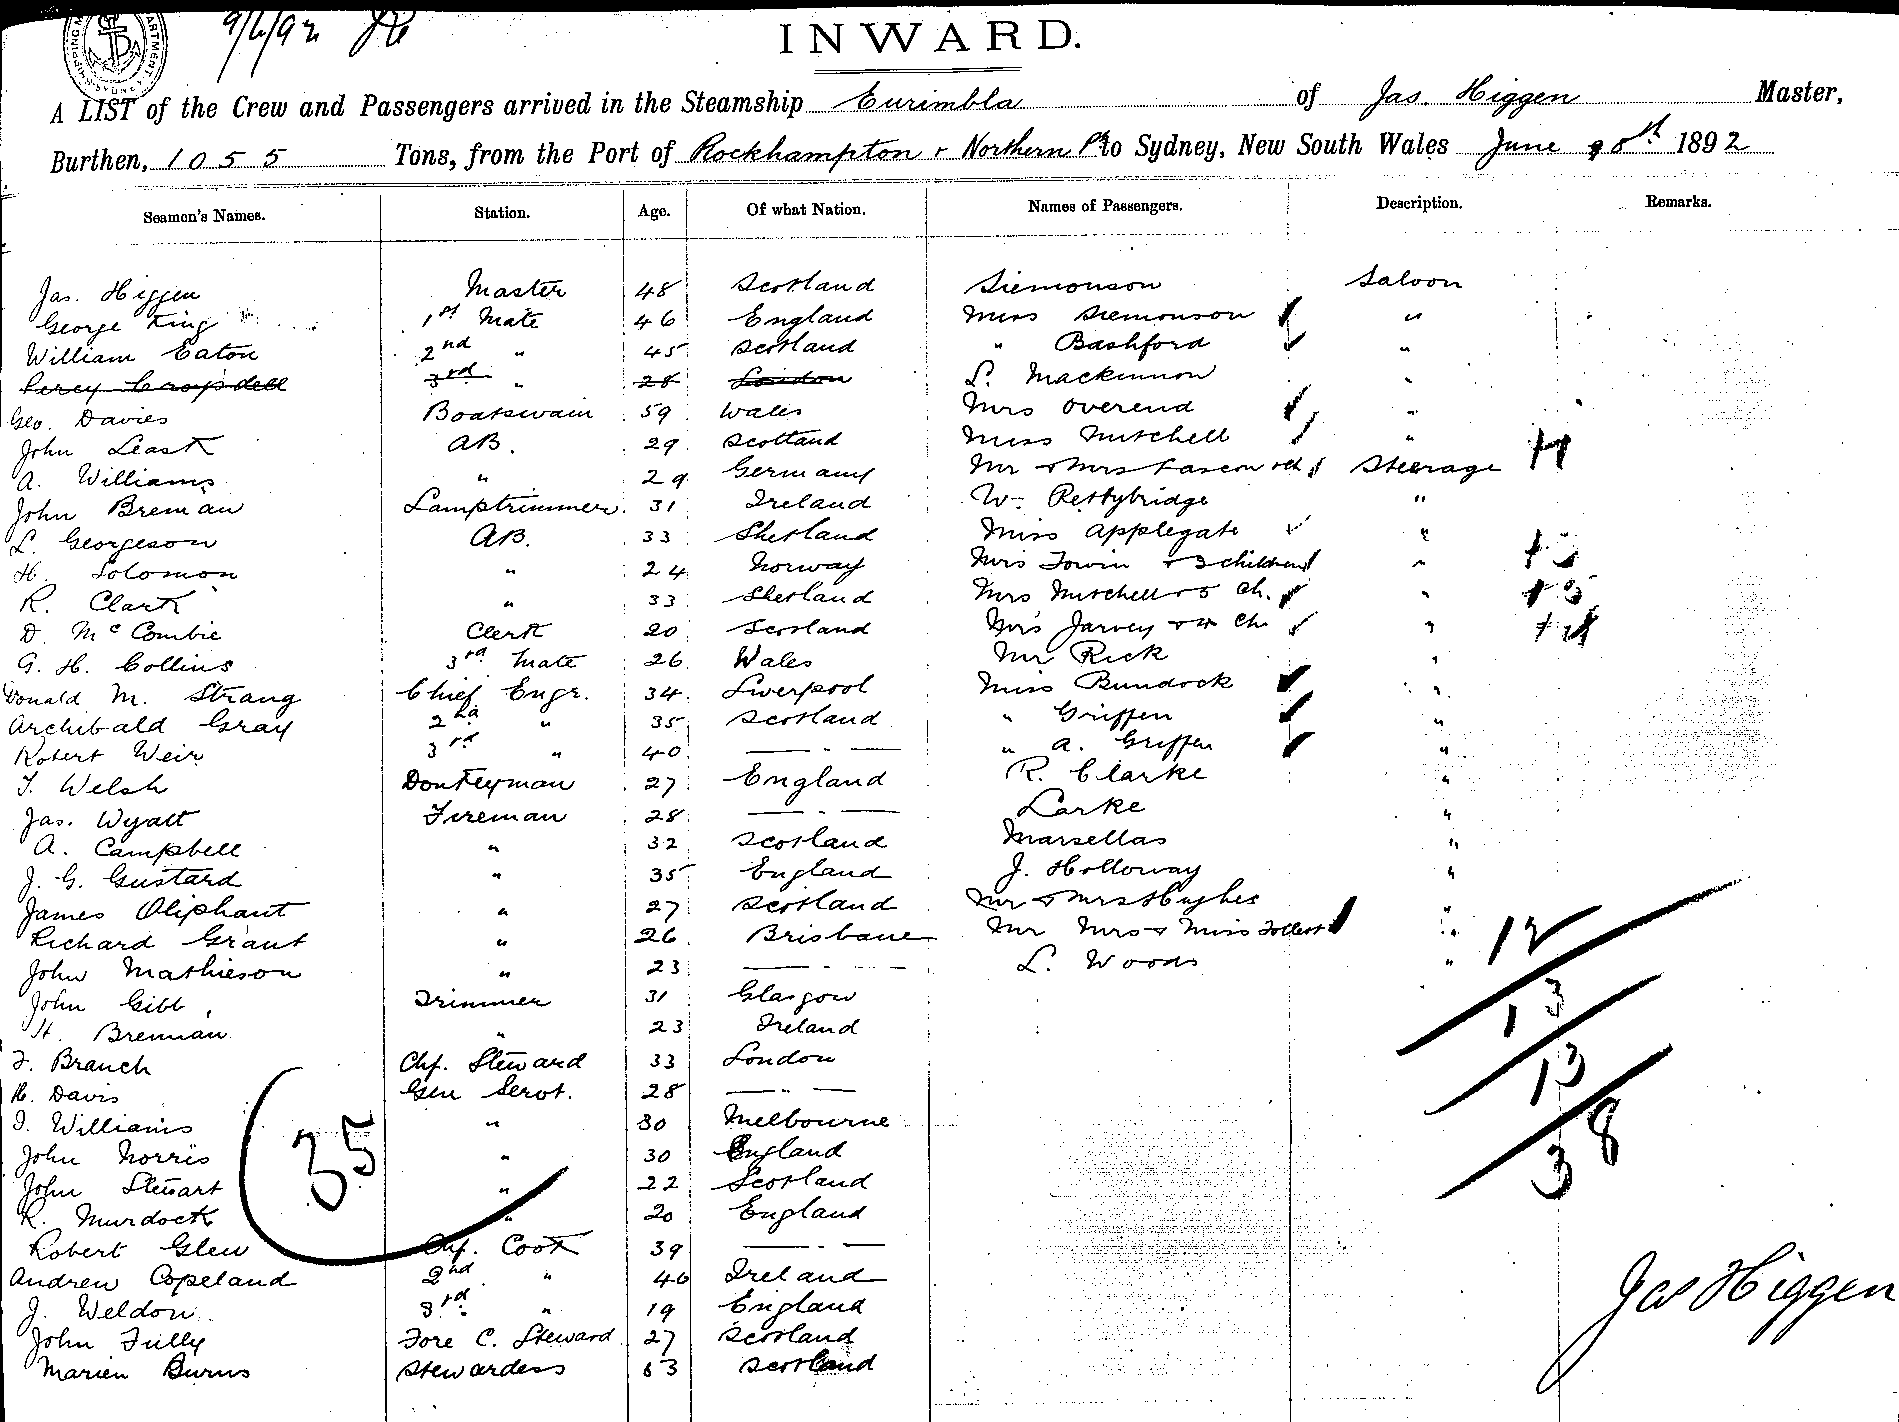 9/6/92
INWARD.
A LIST of the Crew and Passengers arrived in the Steamship Eurimbla of Jas. Higgen Master,
Burthen, 1055 Tons, from the Port of Rockhampton + Northern Pts to Sydney, New South Wales June 1892
Seamen's Names. Station. Age. Of what Nation. Names of Passengers. Description. Remarks.
Jas. Higgen Master 48 Scotland Siemonson Saloon
George King 1st Mate 46 England Miss Siemonson "
William Eaton 2nd " 45 Scotland " Bashford "
Percy Cropsdell 3rd " 28 London L. Mackinnon "
Geo. Davies Boatswain 59 Wales Mrs Overend "
John Leask AB. 29 Scotland Miss Mitchell "
A. Williams " 29 Germany Mr & Mrs Steerage
John Brennan Lamptrimmer 31 Ireland W. Pettybridge "
L. Georgeson AB. 33 Shetland Miss Applegate "
H. Solomon " 24 Norway Mrs Towin + 3 children "
R. Clark " 33 Shetland Mrs Mitchell + 5 Ch. "
D. McCombie Clerk 20 Scotland Mrs Jarvey + 4 Ch. "
G. H. Collins 3rd Mate 26 Wales Mr Rick "
Donald M. Strang Chief Engr. 34 Liverpool Miss Bundock "
Archibald Gray 2nd " 35 Scotland " Griffen "
Robert Weir 3rd " 40 — " — " A. Griffen "
T. Welsh Donkeyman 27 England R. Clarke "
Jas. Wyatt Fireman 28 — " — Larke "
A. Campbell " 32 Scotland Marsellas "
J. G. Gustard " 35 England J. Holloway "
James Oliphant " 27 Scotland Mr & Mrs Hughes "
Richard Grant " 26 Brisbane Mr Mrs & Miss "
John Mathieson " 23 — " — L. Woods " 12
John Gibb Trimmer 31 Glasgow 13
H. Brennan " 23 Ireland
F. Branch Chf. Steward 33 London 13
H. Davis Gen Servt. 28 — " —
J. Williams " 30 Melbourne 38
John Norris " 30 England
35
John Stewart " 22 Scotland
R. Murdock " 20 England
Robert Glew Chf. Cook 39 — " —
Andrew Copeland 2nd " 40 Ireland
J. Weldon 3rd " 19 England
Jas Higgen
John Tully Fore C. Steward 27 Scotland
Marien Burns Stewardess 63 Scotland